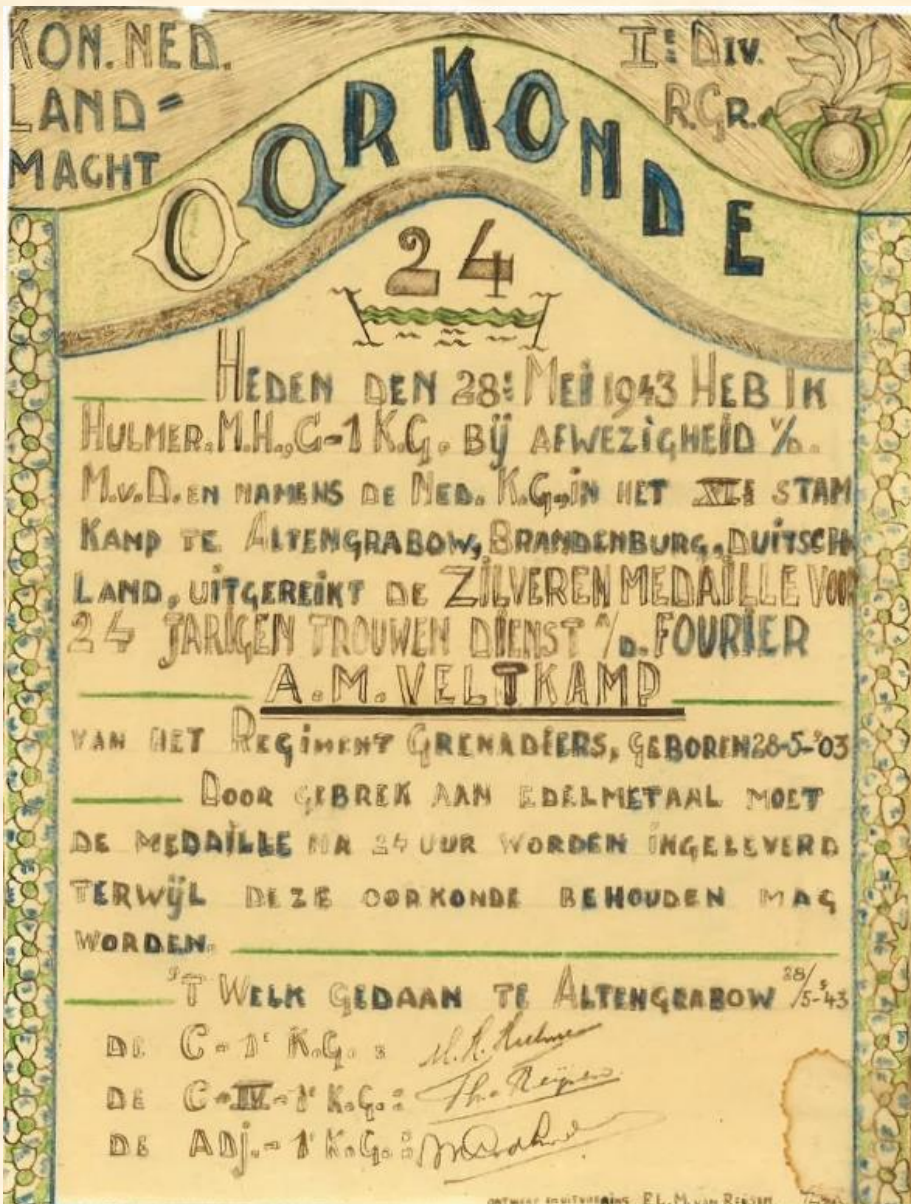 KON. NED.
LAND=
MACHT
Ie DIV.
R.GR.
OORKONDE
24
HEDEN DEN 28e MEI 1943 HEB IK
HULMER. M.H., C-1 K.G. BIJ AFWEZIGHEID V/D.
M.V.D. EN NAMENS DE NED. K.G., IN HET XIe STAM
KAMP TE ALTENGRABOW, BRANDENBURG, DUITSCH
LAND, UITGEREIKT DE ZILVEREN MEDAILLE VOOR
24 JARIGEN TROUWEN DIENST A/D. FOURIER
A.M. VELTKAMP
VAN HET REGIMENT GRENADIERS, GEBOREN 28-5-'03
DOOR GEBREK AAN EDELMETAAL MOET
DE MEDAILLE NA 24 UUR WORDEN INGELEVERD
TERWIJL DEZE OORKONDE BEHOUDEN MAG
WORDEN.
'T WELK GEDAAN TE ALTENGRABOW 28/5-'43
DE C-1e K.G.: M.H. Hulmer
DE C-IV-1e K.G.:
DE ADJ.-1e K.G.:
ONTWERP EN UITVOERING F.L.M. VAN